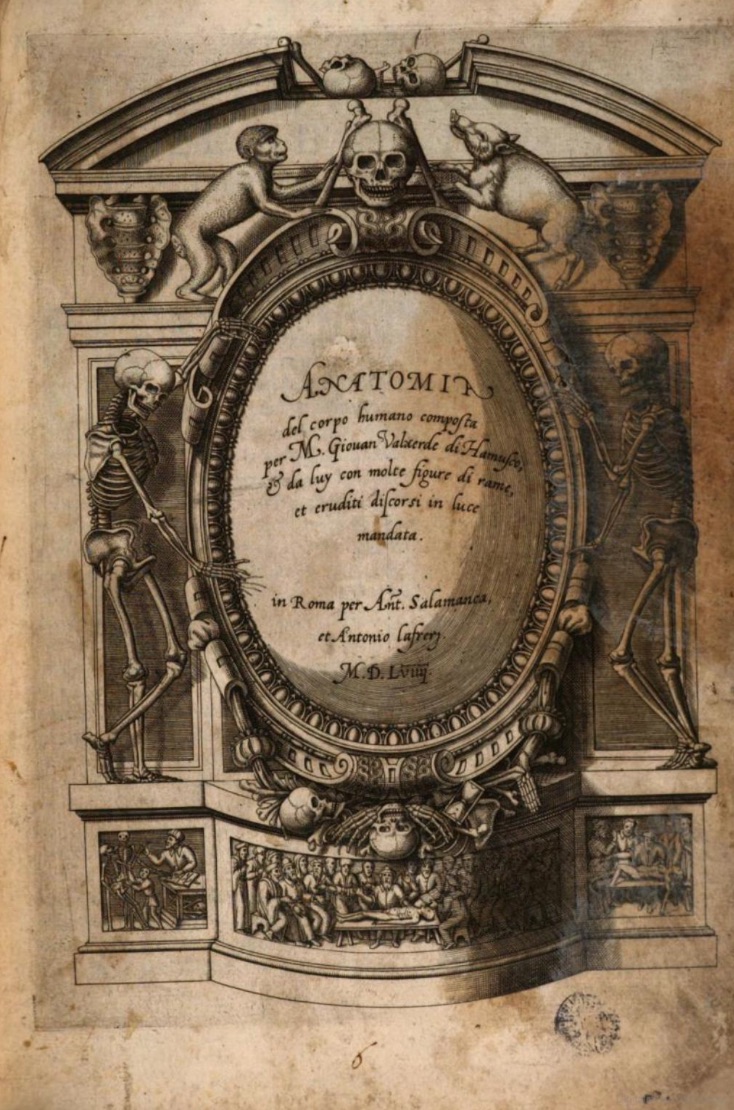 ANATOMIA
del corpo humano composta
per M. Giouan Valuerde di Hamusco,
& da luy con molte figure di rame,
et eruditi discorsi in luce
mandata.
in Roma per Ant. Salamanca,
et Antonio lafrerj.
M. D. LVIIIJ.
6